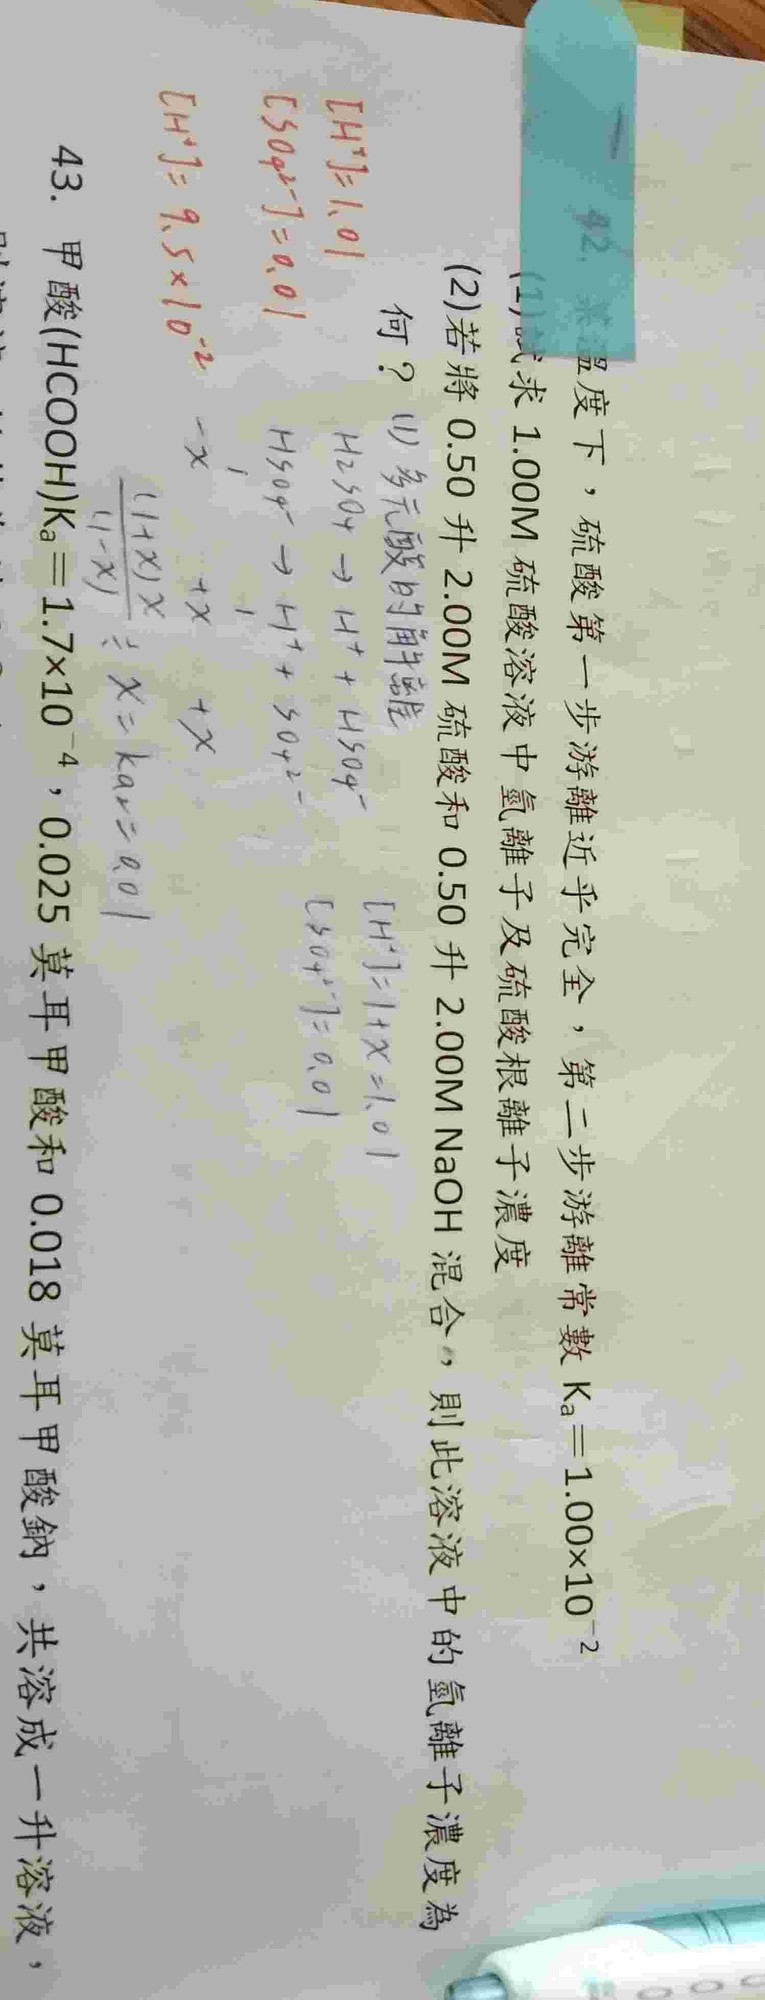 42. 某溫度下，硫酸第一步游離近乎完全，第二步游離常數 Ka＝1.00×10⁻²
(1)試求 1.00M 硫酸溶液中氫離子及硫酸根離子濃度
(2)若將 0.50 升 2.00M 硫酸和 0.50 升 2.00M NaOH 混合，則此溶液中的氫離子濃度為
何？
[H⁺]=1.01
[SO₄²⁻]=0.01
[H⁺]=9.5×10⁻²
(1) 多元酸的解離
H2SO4 → H⁺ + HSO4⁻
HSO4⁻ → H⁺ + SO4²⁻
1 1
-x +x +x
(1+x)x
(1-x)
≒ x = ka2 = 0.01
[H⁺]=1+x=1.01
[SO4²⁻]=0.01
43. 甲酸(HCOOH)Ka＝1.7×10⁻⁴，0.025 莫耳甲酸和 0.018 莫耳甲酸鈉，共溶成一升溶液，